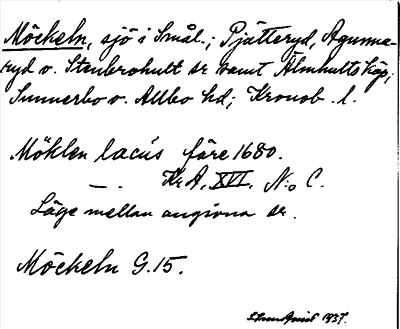 Möckeln, sjö i Smål.; Pjätteryd, Agunna-
ryd o. Stenbrohult sr samt Älmhults köp;
Sunnerbo o. Allbo hd; Kronob. l.
Möklen lacus före 1680.
—. Kr A, XVI, N:o C.
Läge mellan angivna sr.
Möckeln G.15.
1937.